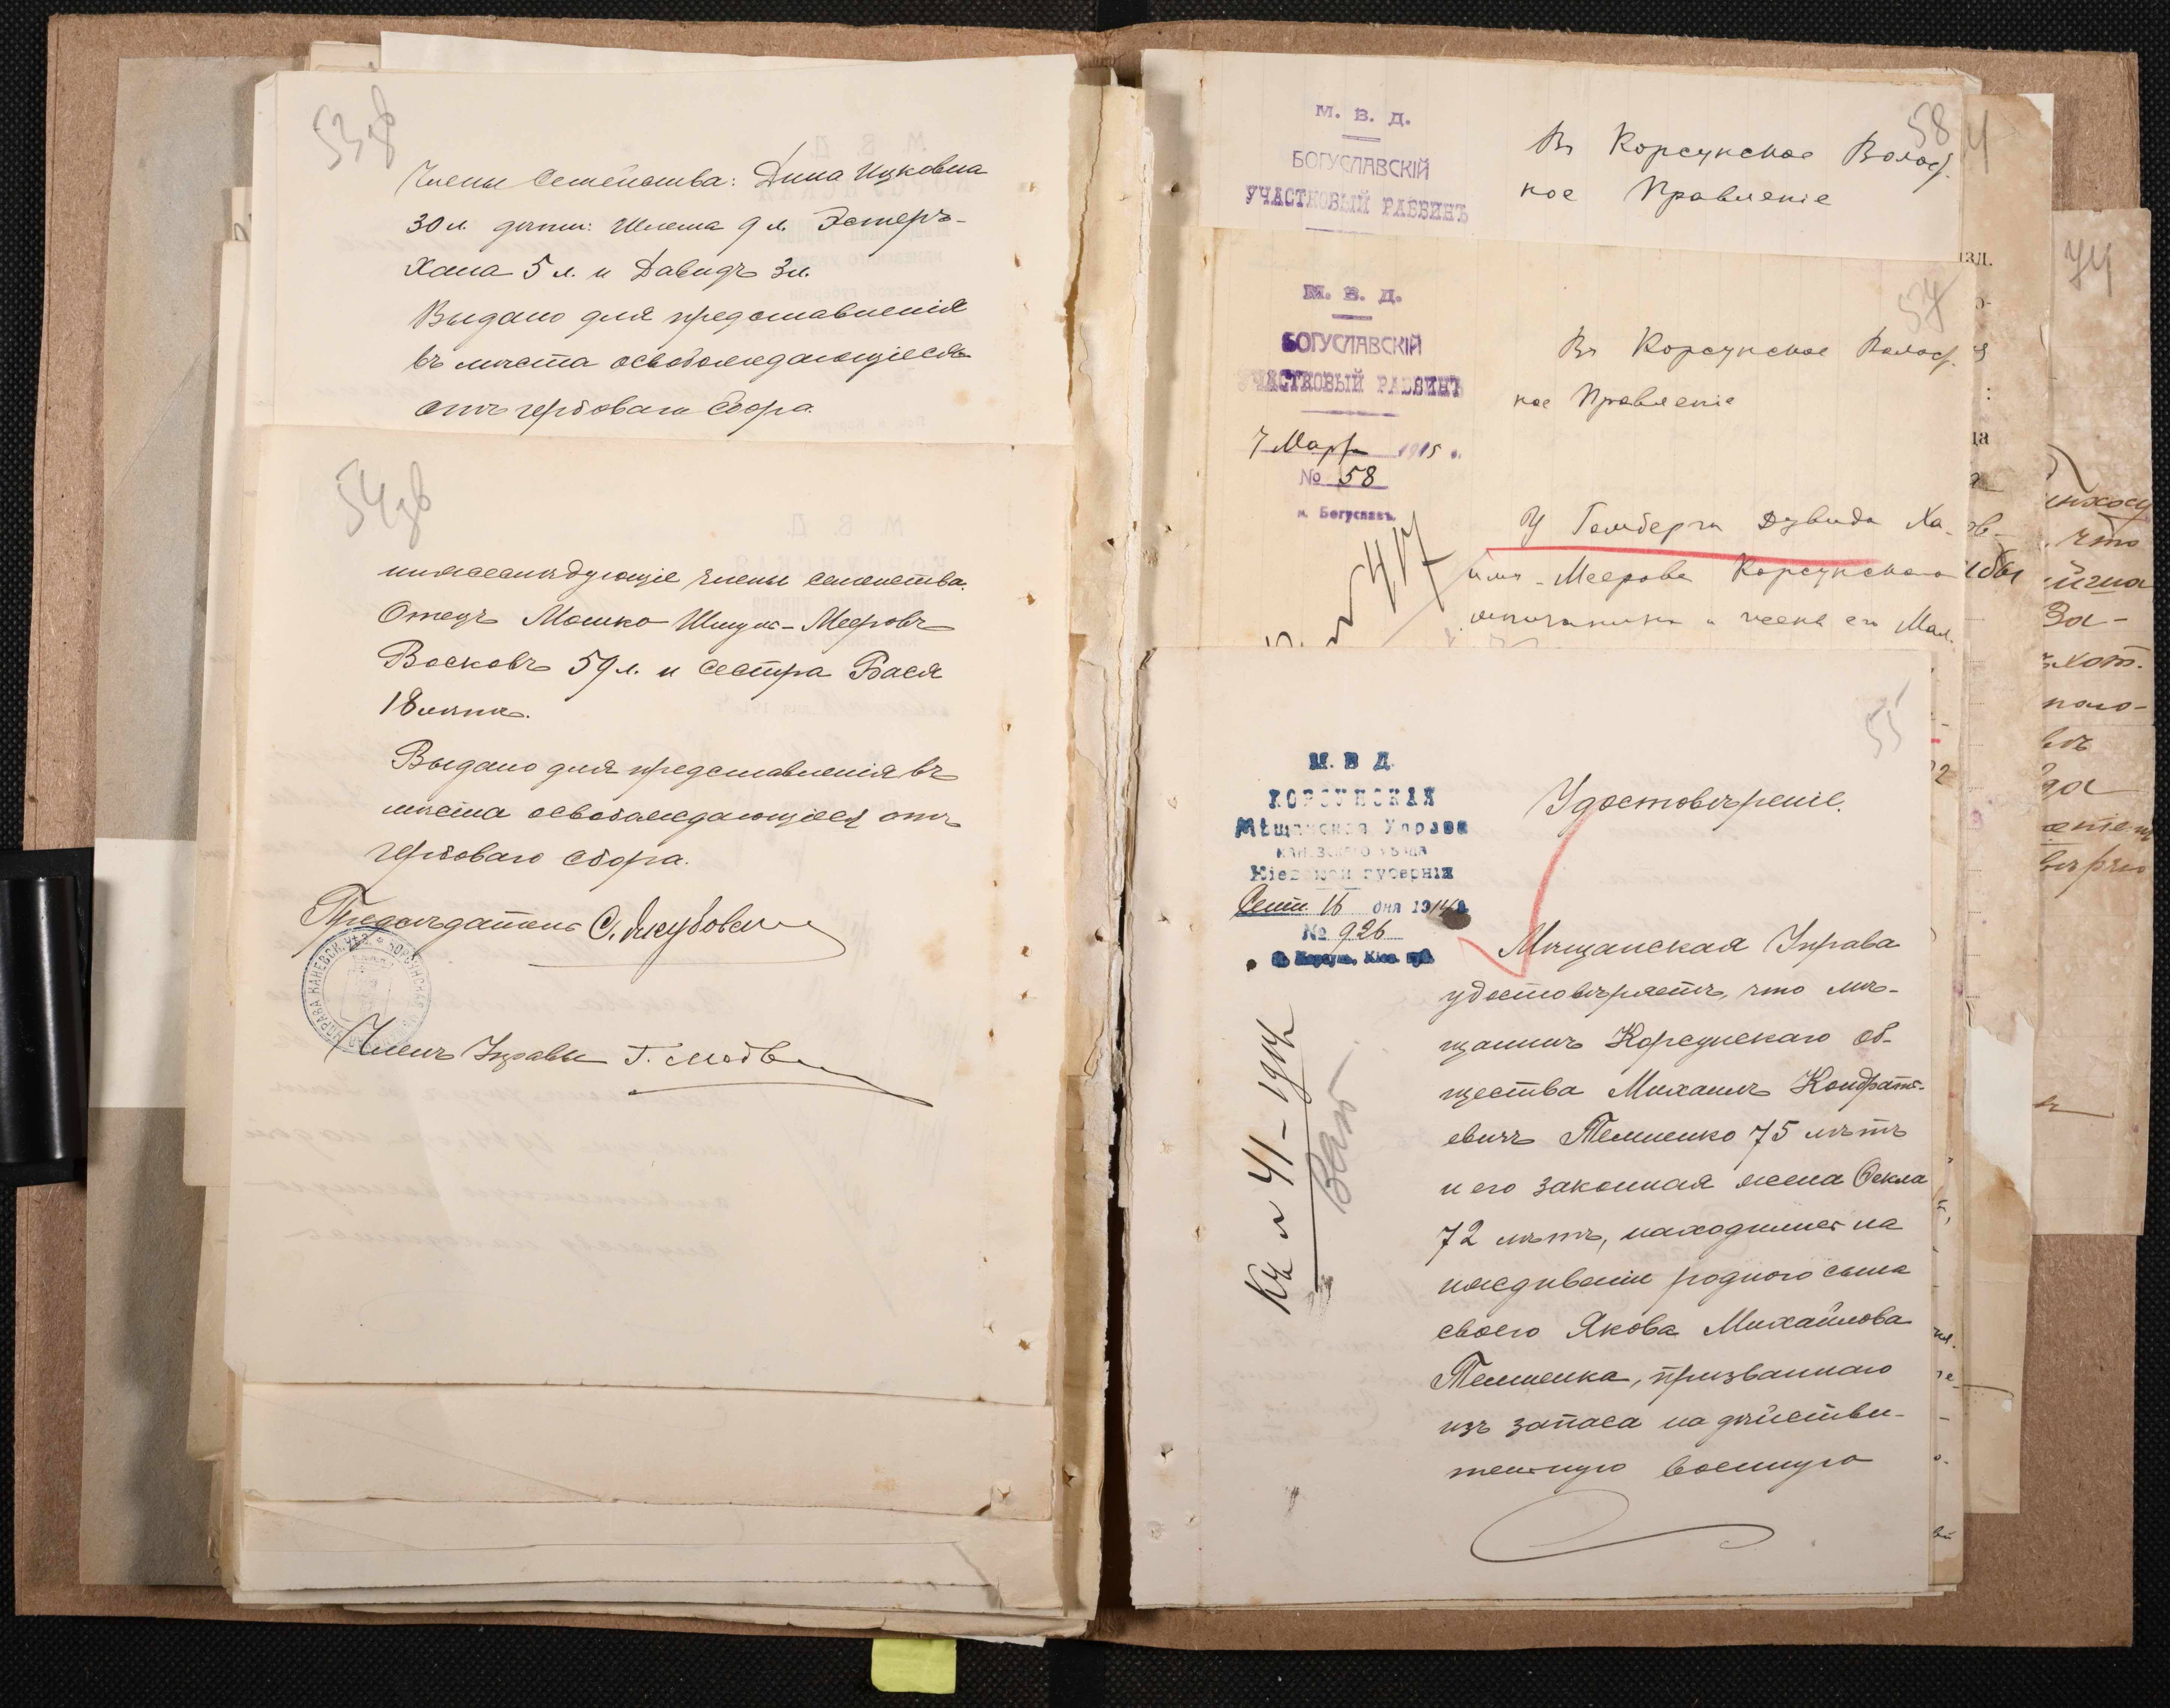 53 зв
Члены Семейства: Дина Ицковна
30 л. дѣти: Шлема 9 л. Эстеръ-
Хана 5 л. и Давидъ 3 л.
Выдано для представленія
въ мѣста освобождающіеся
отъ гербоваго сбора.
54 зв
нижеслѣдующіе члены семейства.
Отецъ Мошко Шмуль-Мееровъ
Восковъ 59 л. и сестра Бася
18 лѣтъ.
Выдано для представленія въ
мѣста освобождающіеся отъ
гербоваго сбора.
Предсѣдатель
Членъ Управы
58
М. В. Д.
БОГУСЛАВСКІЙ
УЧАСТКОВЫЙ РАВВИНЪ
Въ Корсунское Волост.
ное Правленіе
57
М. В. Д.
БОГУСЛАВСКІЙ
УЧАСТКОВЫЙ РАВВИНЪ
7 Март 1915 г.
№ 58
м. Богуславъ
Въ Корсунское Волост.
ное Правленіе
У Гомберга Дувида Ха-
има-Меерова Корсунского
мѣщанина и жены его Мал.
55
М. В. Д.
КОРСУНСКАЯ
Мѣщанская Управа
каневскаго уѣзда
Кіевской губерніи
Сент. 16 дня 1914 г.
№ 926
м. Корсунь, Кіев. губ.
Удостовѣреніе.
Мѣщанская Управа
удостовѣряетъ, что мѣ-
щанинъ Корсунскаго об-
щества Михаилъ Кондрать-
евичъ Темненко 75 лѣтъ
и его законная жена Фекла
72 лѣтъ, находились на
иждивеніи родного сына
своего Якова Михайлова
Темненка, призваннаго
изъ запаса на дѣйстви-
тельную военную
Къ № 41-1914